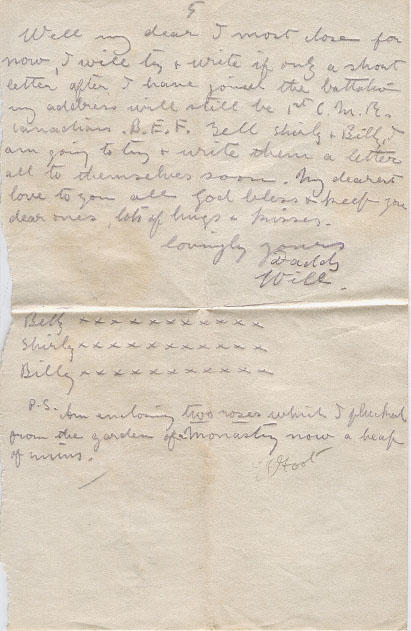 5
Well my dear I most close for
now, I will try + write if only a short
letter after I have joined the battalion
my address will still be 1st C. M. R.
Canadians. B. E. F. Tell Shirly + Billy I
am going to try + write them a letter
all to themselves soon. My dearest
love to you all God bless + keep you
dear ones, lots of hugs + kisses.
lovingly yours
Daddy
Will.
Betty x x x x x x x x x x x
Shirly x x x x x x x x x x x
Billy x x x x x x x x x x x
P.S. Am enclosing two roses which I plucked
from the garden of a Monastry now a heap
of ruins.